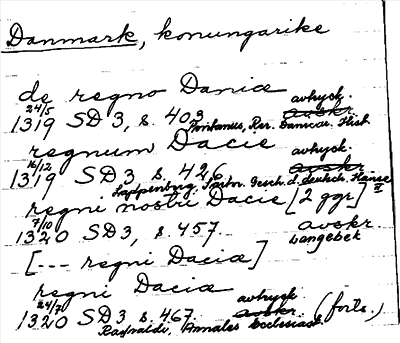 Danmark, konungarike
de regno Daniæ
24/5 avtryck.
1319 SD 3, s. 403 avskr.
Pontanus, Rer. Danicar. Hist
regnum Dacie
16/12 avtryck.
1319 SD 3, s. 426 avskr.
Lappenburg, Gesch. d. deutsch. Hanse II
regni nostri Dacie [2 ggr]
7/10 avskr
1320 SD 3, s. 457. Langebek
[--- regni Daciæ]
regni Daciæ
24/7 avtryck
1320 SD 3, s. 467. avskr. (forts.)
Raynaldi, Annales Ecclesiast